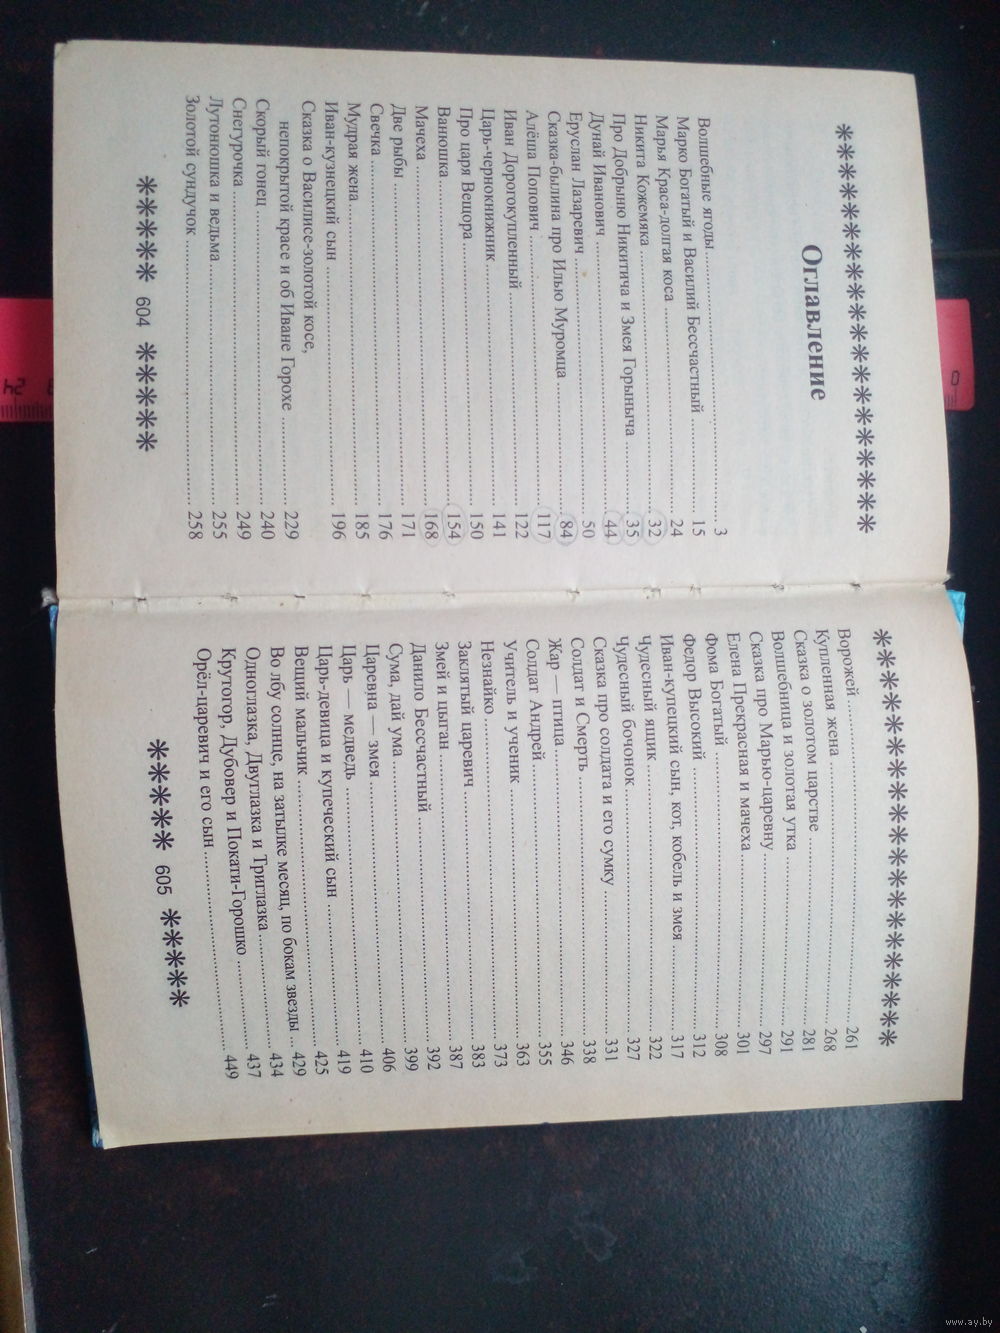 Оглавление
Волшебные ягоды 3
Марко Богатый и Василий Бессчастный 15
Марья Краса-долгая коса 24
Никита Кожемяка 32
Про Добрыню Никитича и Змея Горыныча 35
Дунай Иванович 44
Еруслан Лазаревич 50
Сказка-былина про Илью Муромца 84
Алёша Попович 117
Иван Дорогокупленный 122
Царь-чернокнижник 141
Про царя Вещора 150
Ванюшка 154
Мачеха 168
Две рыбы 171
Свечка 176
Мудрая жена 185
Иван-кузнецкий сын 196
Сказка о Василисе-золотой косе,
непокрытой красе и об Иване Горохе 229
Скорый гонец 240
Снегурочка 249
Лутонюшка и ведьма 255
Золотой сундучок 258
604
Ворожей 261
Купленная жена 268
Сказка о золотом царстве 281
Волшебница и золотая утка 291
Сказка про Марью-царевну 297
Елена Прекрасная и мачеха 301
Фома Богатый 308
Федор Высокий 312
Иван-купецкий сын, кот, кобель и змея 317
Чудесный ящик 322
Чудесный бочонок 327
Сказка про солдата и его сумку 331
Солдат и Смерть 338
Жар — птица 346
Солдат Андрей 355
Учитель и ученик 363
Незнайко 373
Заклятый царевич 383
Змей и цыган 387
Данило Бессчастный 392
Сума, дай ума 399
Царевна — змея 406
Царь — медведь 410
Царь-девица и купеческий сын 419
Вещий мальчик 425
Во лбу солнце, на затылке месяц, по бокам звезды 429
Одноглазка, Двуглазка и Триглазка 434
Крутогор, Дубовер и Покати-Горошко 437
Орёл-царевич и его сын 449
605
0
24
www.ay.by